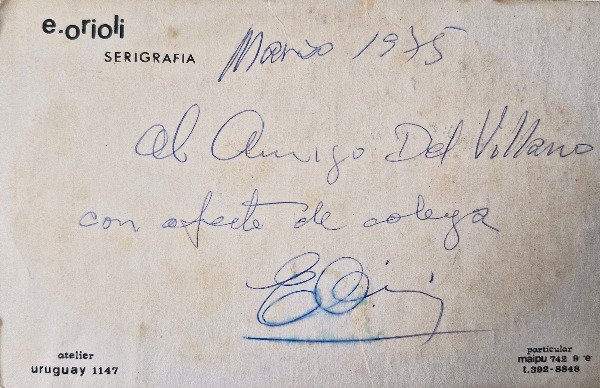 e.orioli
SERIGRAFIA
Marzo 1975
al Amigo Del Villano
con afecto de colega
EOrioli
atelier
uruguay 1147
particular
maipu 742 9 "e"
t.392-8848